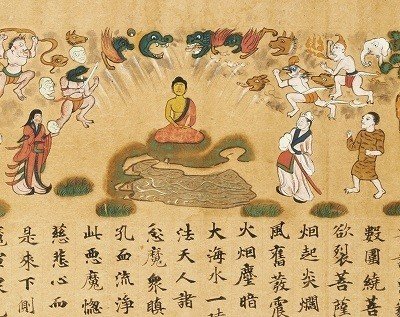 數圍繞菩
欲裂菩薩
烟起炎爓
風奮發震
火烟塵暗
大海水一
法天人諸
忿魔衆瞋
孔血流淨
此惡魔惱
慈悲心而
是來下側